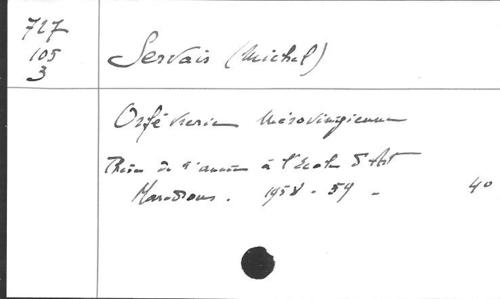 727
105
3
Servais (Michel)
Orfévrerie Mérovingienne
Thèse de d'année à l'Ecole d'Art
Maredsous. 1958-59 - 4°